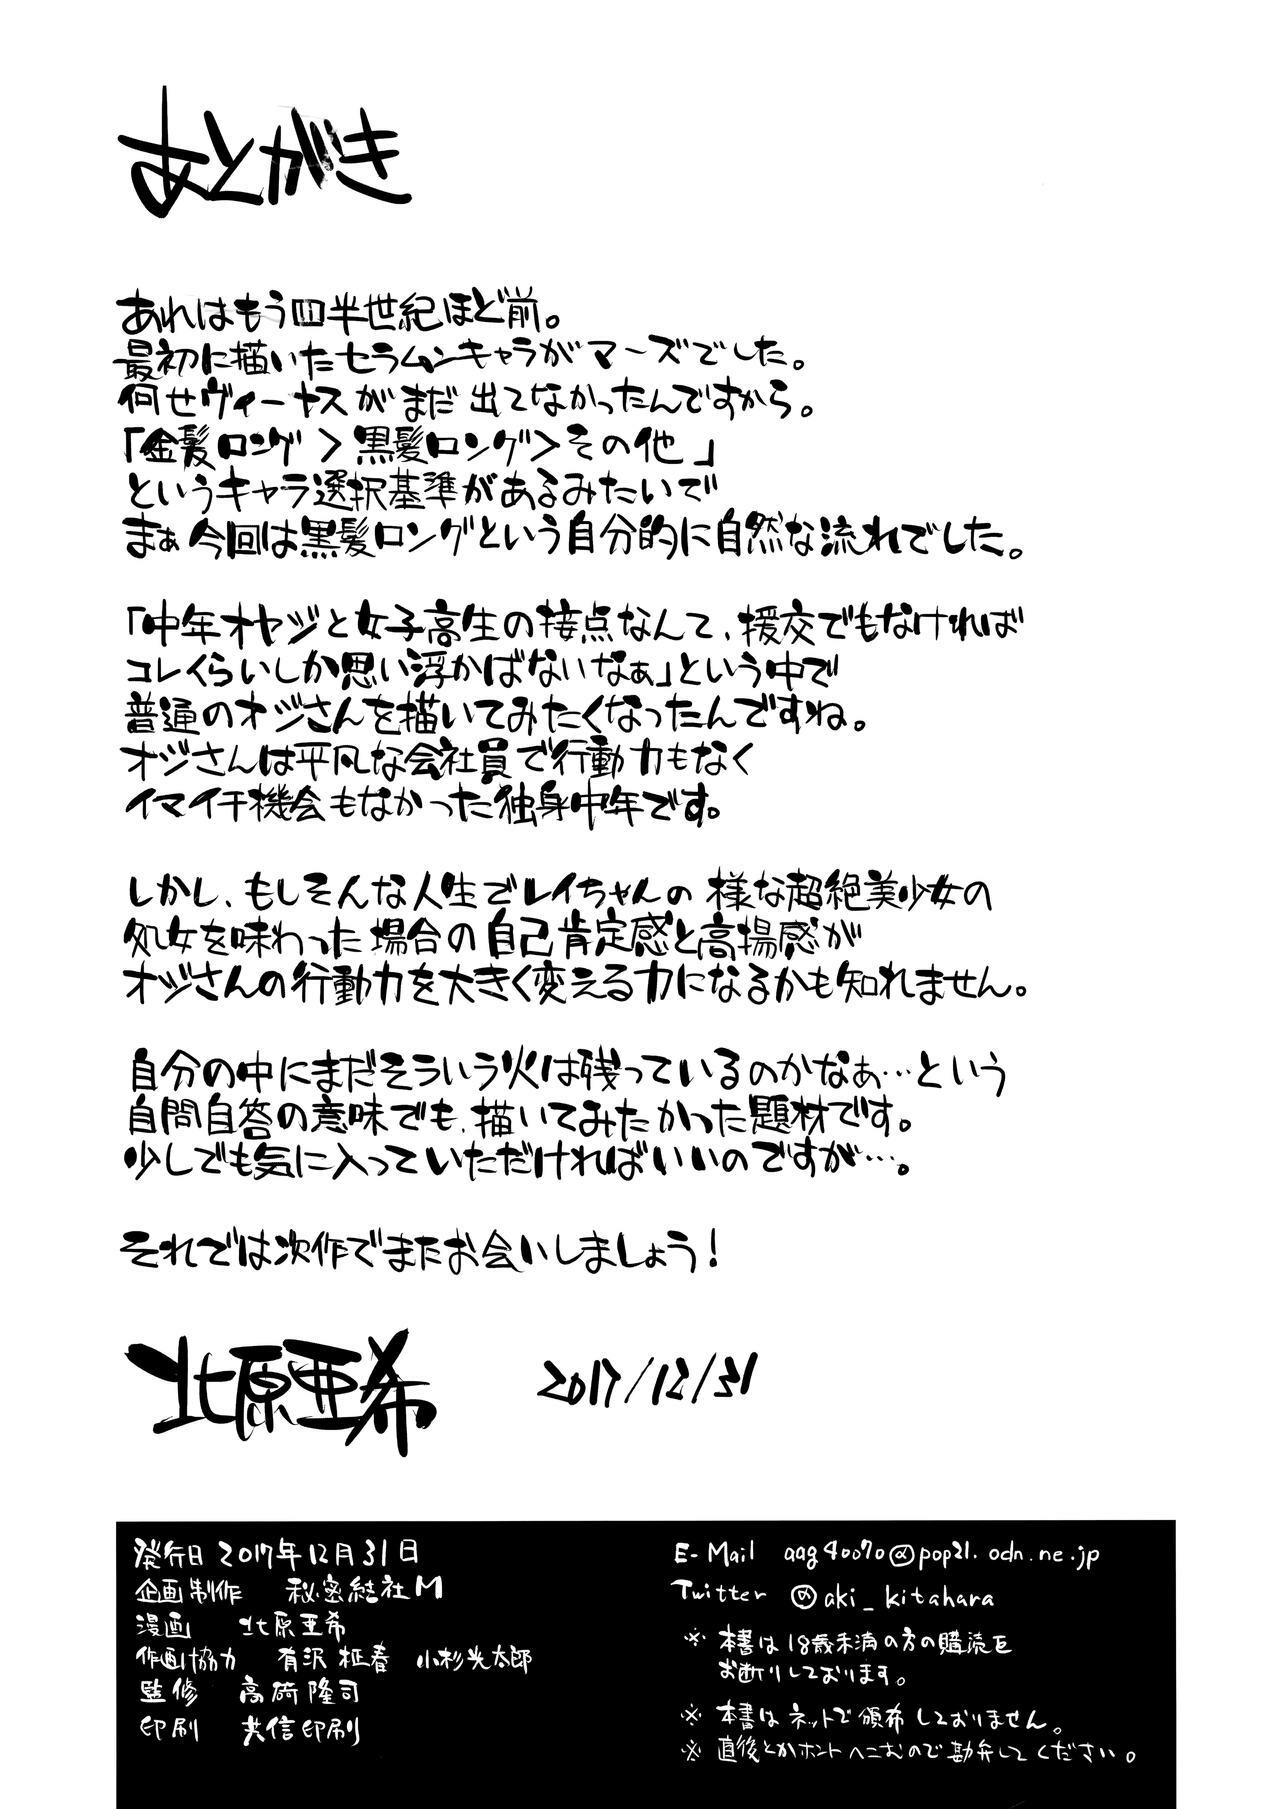 あとがき
あれはもう四半世紀ほど前。
最初に描いたセラムンキャラがマーズでした。
何せヴィーナスがまだ出てなかったんですから。
「金髪ロング＞黒髪ロング＞その他」
というキャラ選択基準があるみたいで
まぁ今回は黒髪ロングという自分的に自然な流れでした。
「中年オヤジと女子高生の接点なんて、援交でもなければ
コレくらいしか思い浮かばないなぁ」という中で
普通のオジさんを描いてみたくなったんですね。
オジさんは平凡な会社員で行動力もなく
イマイチ機会もなかった独身中年です。
しかし、もしそんな人生でレイちゃんの様な超絶美少女の
処女を味わった場合の自己肯定感と高揚感が
オジさんの行動力を大きく変える力になるかも知れません。
自分の中にまだそういう火は残っているのかなぁ…という
自問自答の意味でも、描いてみたかった題材です。
少しでも気に入っていただければいいのですが…。
それでは次作でまたお会いしましょう！
北原亜希 2017/12/31
発行日 2017年12月31日
企画制作 秘密結社M
漫画 北原亜希
作画協力 有沢 征春 小杉光太郎
監修 高荷 隆司
印刷 共信印刷
E-Mail aag40070@pop21.odn.ne.jp
Twitter @aki_kitahara
※ 本書は18歳未満の方の購読を
お断りしております。
※ 本書はネットで頒布しておりません。
※ 直後とかホントへこむので勘弁してください。